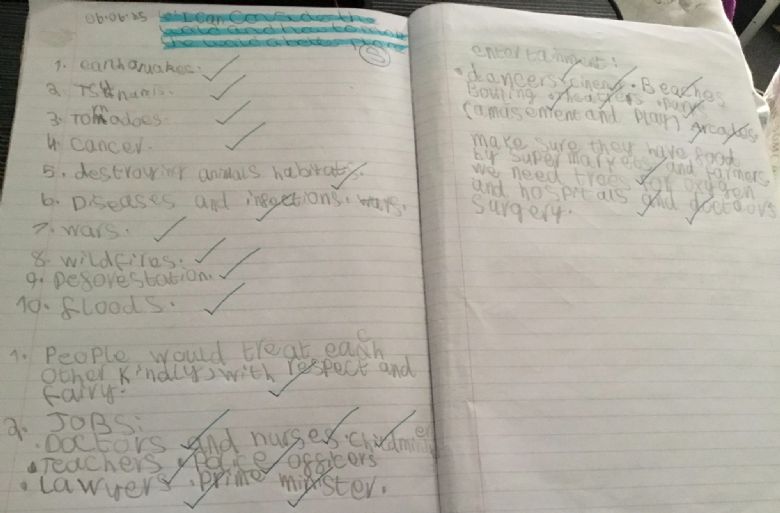 06.06.25 I can consider the
world and how to
1. earthquakes.
2. TSunamis.
3. Tornadoes.
4. cancer.
5. destroying animals habitats.
6. Diseases and infections. wars.
7. wars.
8. wildfires.
9. Deforestation.
10. floods.
1. People would treat each
other Kindly, with respect and
fairy.
2. JOBS:
• Doctors and nurses •
• Teachers • Police officers
• Lawyers • Prime minister.
entertainment:
• dancers • cinema • Beaches
Bowling • theaters • parks
(amusement and play) Arcades.
make sure they have food
by supermarkets and farmers
we need trees for oxygen
and hospitals and doctors
surgery.